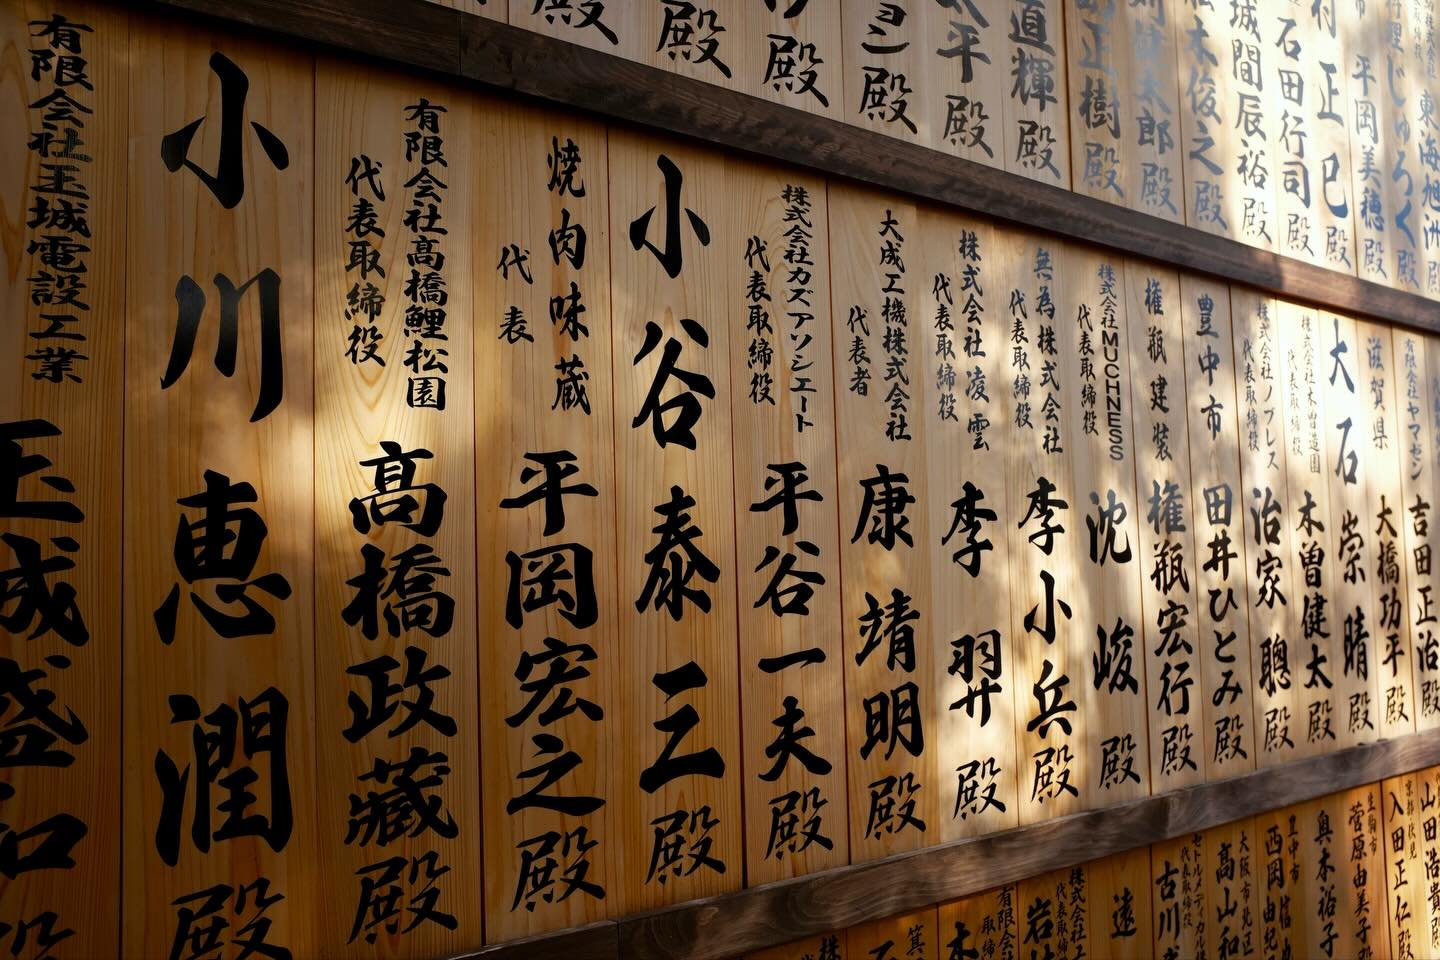 東海旭洲
じゅろく殿
平岡美穂殿
村正巳殿
石田行司殿
城間辰裕殿
木俊之殿
健太郎殿
正樹殿
直輝殿
平殿
殿
殿
殿
殿
有限会社ヤマゼン
吉田正治殿
大橋功平殿
滋賀県
崇晴殿
大石
株式会社木曽造園
代表取締役
木曽健太殿
株式会社ノブレス
代表取締役
治家聰殿
豊中市
田井ひとみ殿
権瓶建装
権瓶宏行殿
株式会社MUCHNESS
代表取締役
沈峻殿
無為株式会社
代表取締役
李小兵殿
株式会社凌雲
代表取締役
李羿殿
大成工機株式会社
代表者
康靖明殿
株式会社カズアソシエート
代表取締役
平谷一夫殿
小谷泰三殿
焼肉味蔵
代表
平岡宏之殿
有限会社髙橋鯉松園
代表取締役
髙橋政藏殿
小川恵潤殿
有限会社玉城電設工業
玉城盛和殿
山田浩貴殿
京都伏見
入田正仁殿
生駒市
菅原由美子殿
奥本裕子
豊中市
西岡由紀
大阪市北区
高山和
セトルメディカル
代表取締役
古川
遠
株式会社
代表取締
岩
有限会社
取締
木
箕
株